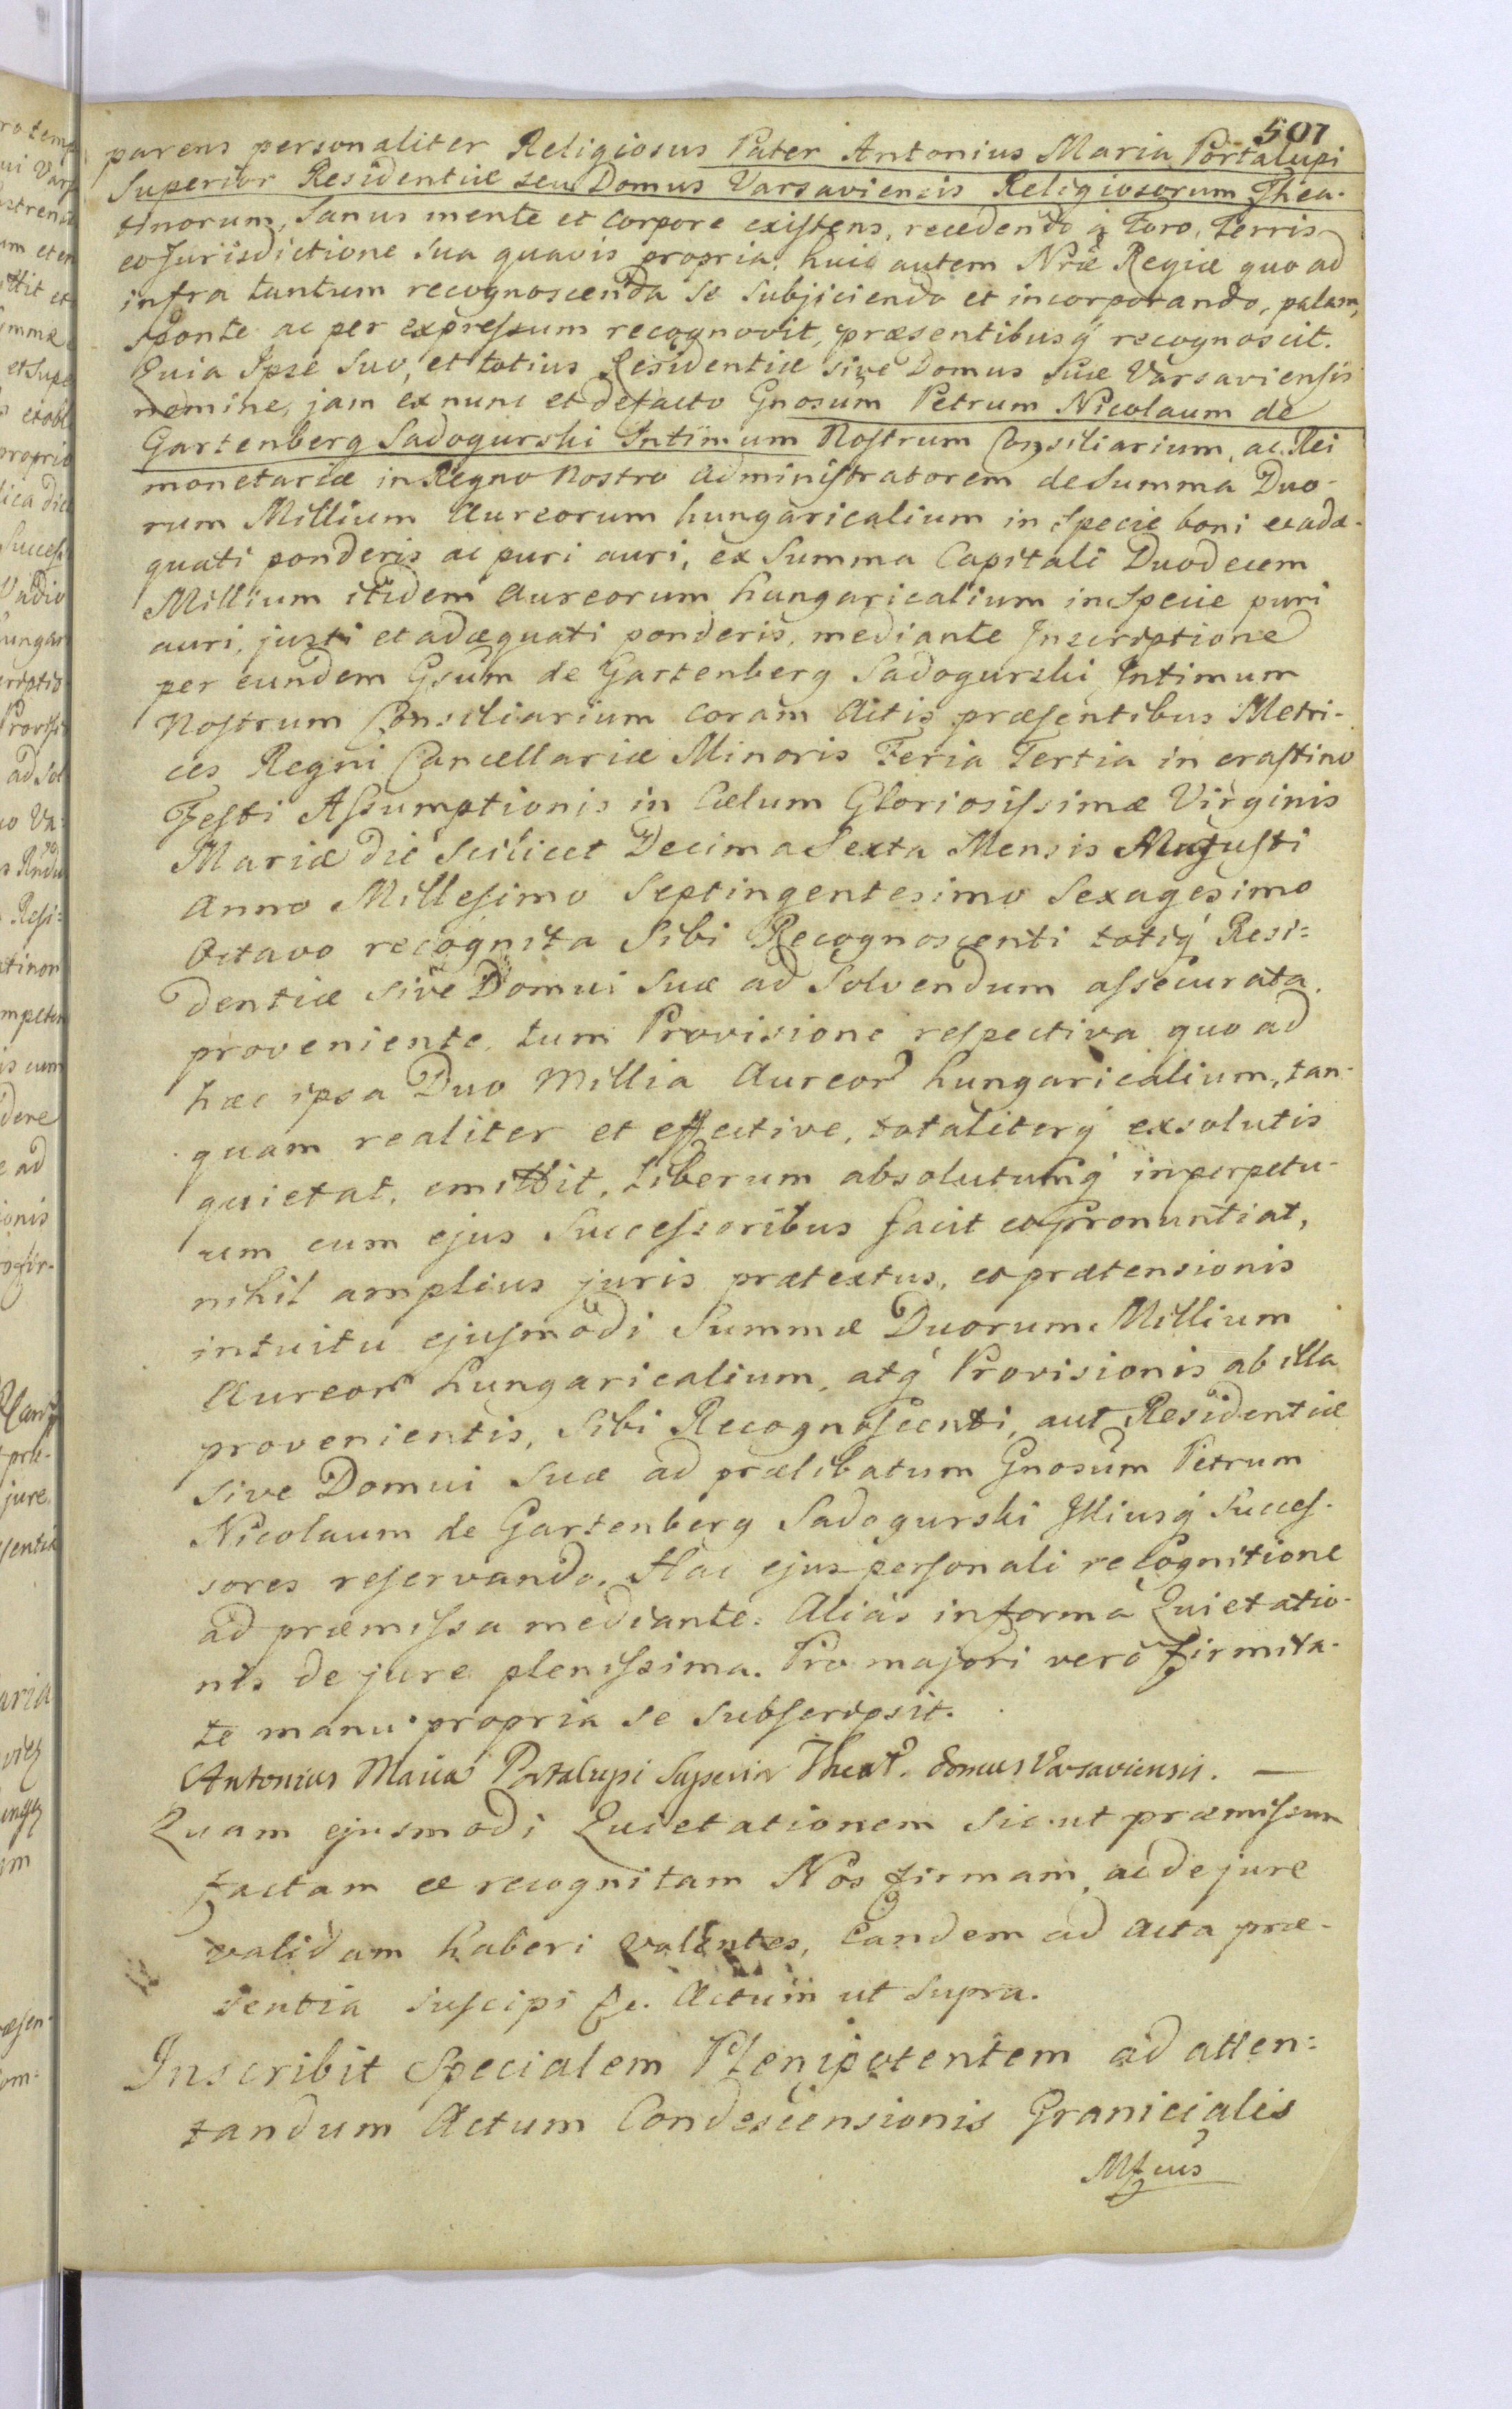 507
parens personaliter Religiosus Pater Antonius Maria Portalupi
Superior Residentiæ seu Domus Varsaviensis Religiosorum Thea-
tinorum, Sanus mente et Corpore existens, recedendo à Foro, Terris
et Jurisdictione sua quavis propria, huic autem Nræ Regiæ quo ad
infra tantum recognoscenda se subjiciendo et incorporando, palam,
sponte ac per expressum recognovit, præsentibusq́ recognoscit.
Quia Ipse Suo, et totius Residentiæ sive Domus suæ Varsaviensis
nomine, jam ex nunc et defacto Gnosum Petrum Nicolaum de
Gartenberg Sadogurski Intimum Nostrum Consiliarium, ac Rei
monetariæ in Regno Nostro administratorem de Summa Duo-
rum Millium Aureorum hungaricalium in specie boni et adæ-
quati ponderis ac puri auri, ex Summa Capitali Duodecem
Millium itidem Aureorum hungaricalium in specie puri
auri, justi et adæquati ponderis, mediante Inscriptione
per eundem Gsum de Gartenberg Sadogurski Intimum
Nostrum Consiliarium coram Actis præsentibus Metri-
ces Regni Cancellariæ Minoris Feria Tertia in crastino
Festi Assumptionis in Cælum Gloriosissimæ Virginis
Mariæ die scilicet Decima Sexta Mensis Augusti
Anno Millesimo Septingentesimo Sexagesimo
Octavo recognita Sibi Recognoscenti totiq́ Resi=
dentiæ sive Domui Suæ ad Solvendum assecurata,
proveniente, tum Provisione respectiva quo ad
hæc ipsa Duo Millia Aureor hungaricalium, tan-
quam realiter et effective, totaliterq́ exsolutis
quietat, emittit, Liberum absolutumq́ in perpetu-
um cum ejus Successoribus facit et pronuntiat,
nihil amplius juris prætextus, et prætensionis
intuitu ejusmodi Summæ Duorum Millium
Aureor hungaricalium, atq́ Provisionis ab illa
provenientis, Sibi Recognoscenti, aut Residentiæ
sive Domui Suæ ad prælibatum Gnosum Petrum
Nicolaum de Gartenberg Sadogurski Illiusq́ Succes-
sores reservando. Hac ejus personali recognitione
ad præmissa mediante. Aliàs in forma Quietatio-
nis de jure plenissima. Pro majori verò firmita-
te manu propria se subscripsit.
Antonius Maria Portalupi Superior Theat. domus Varsaviensis. —
Quam ejusmodi Quietationem sic ut præmissum
factam et recognitam Nos firmam, ac de jure
validam haberi volentes, Eandem ad Acta præ-
sentia suscipi &c. Actum ut supra.
Inscribit Specialem Plenipotentem ad atten=
tandum Actum Condescensionis Granicialis